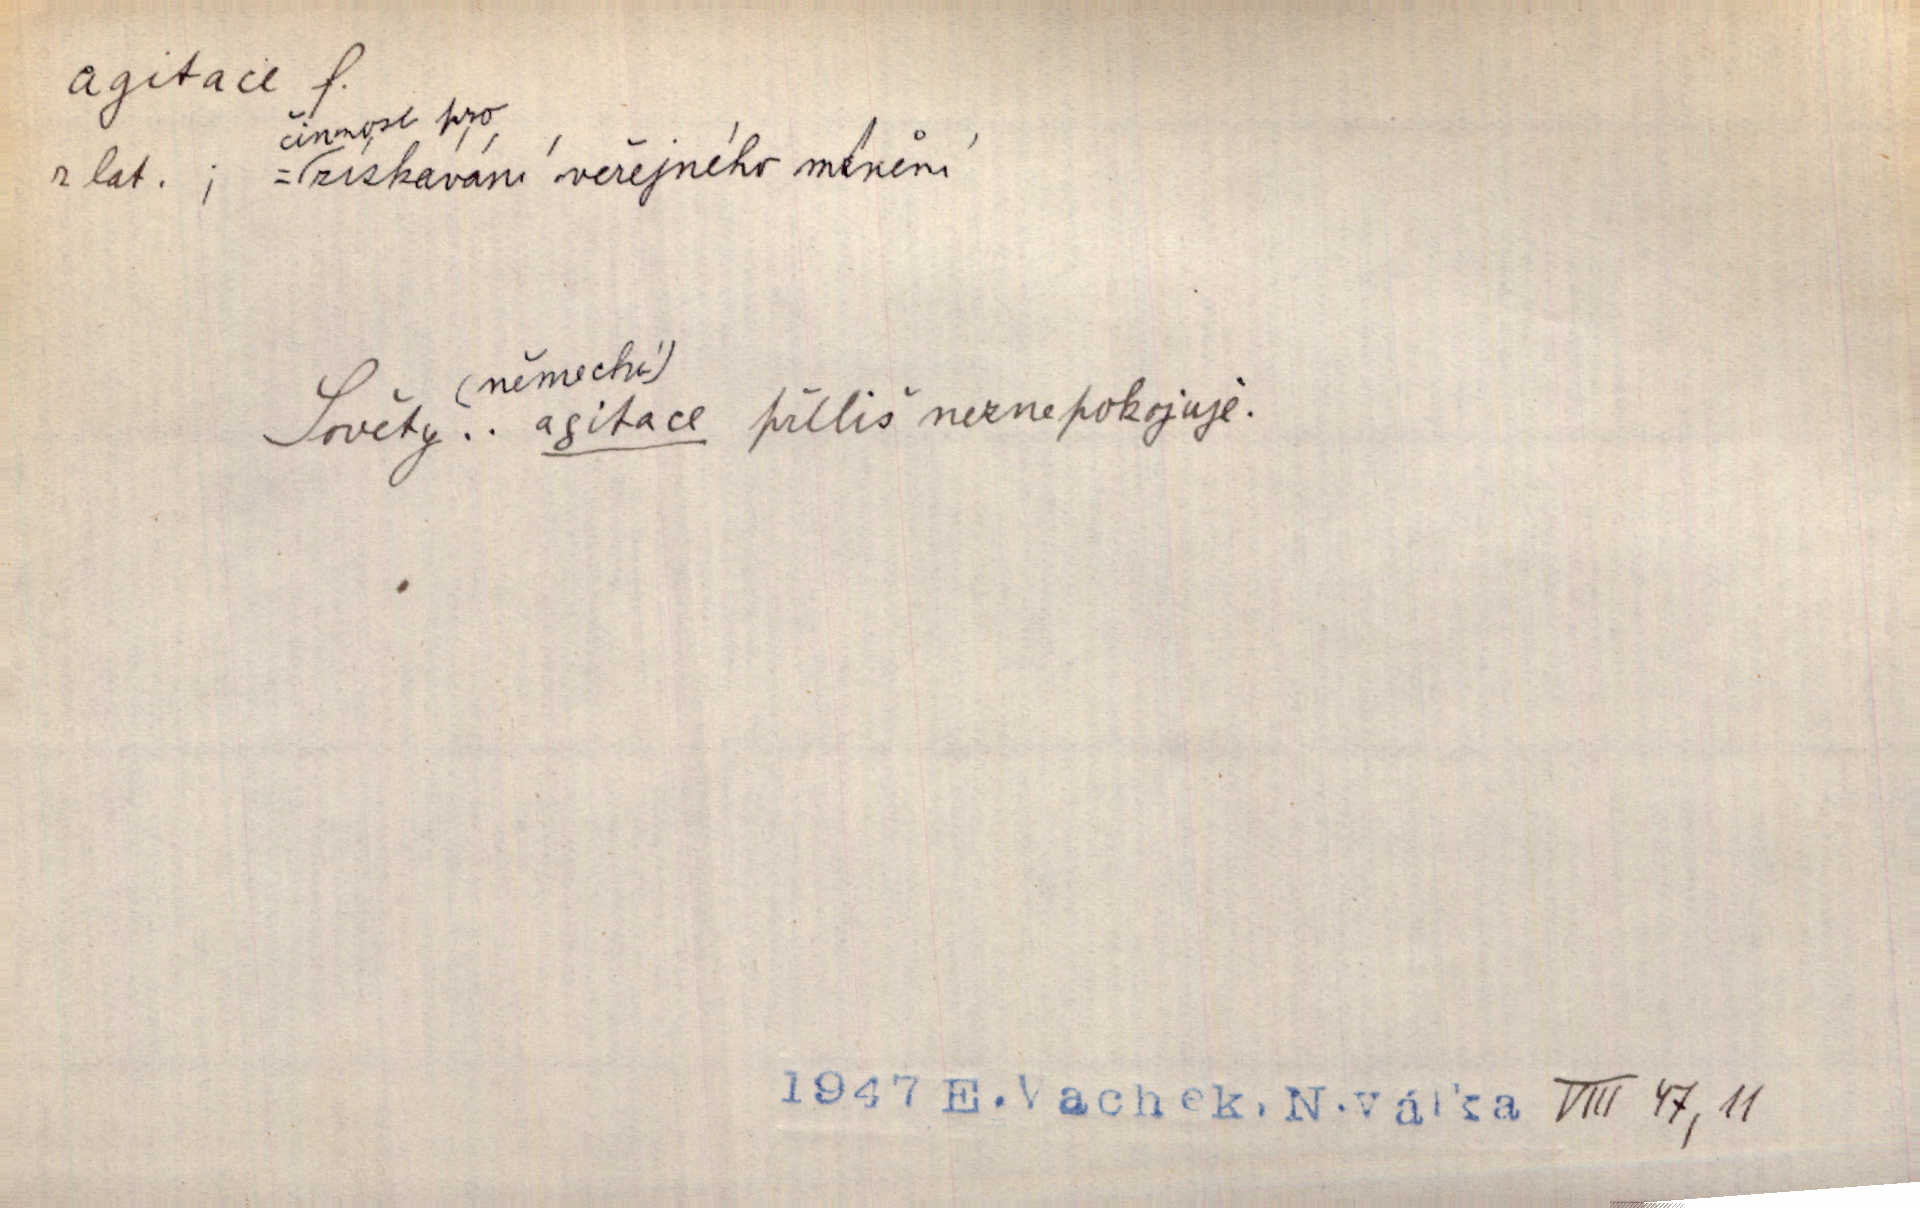 agitace f.
činnost pro
z lat. ; = získávání veřejného mínění
(německá)
Sověty .. agitace příliš neznepokojuje.
1947 E. Vachek, N. válka VIII 47, 11